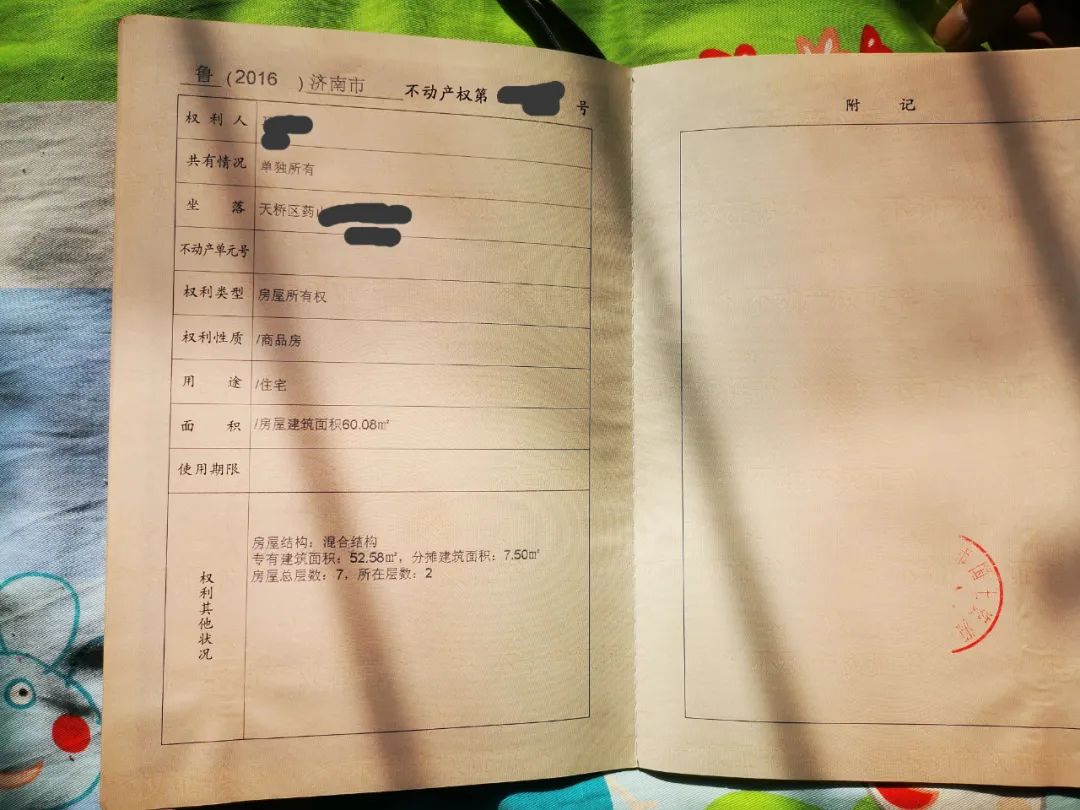 鲁(2016 )济南市 不动产权第 号
权利人
共有情况 单独所有
坐落 天桥区药
不动产单元号
权利类型 房屋所有权
权利性质 /商品房
用途 /住宅
面积 /房屋建筑面积60.08㎡
使用期限
权利其他状况
房屋结构：混合结构
专有建筑面积：52.58㎡，分摊建筑面积：7.50㎡
房屋总层数：7，所在层数：2
附记